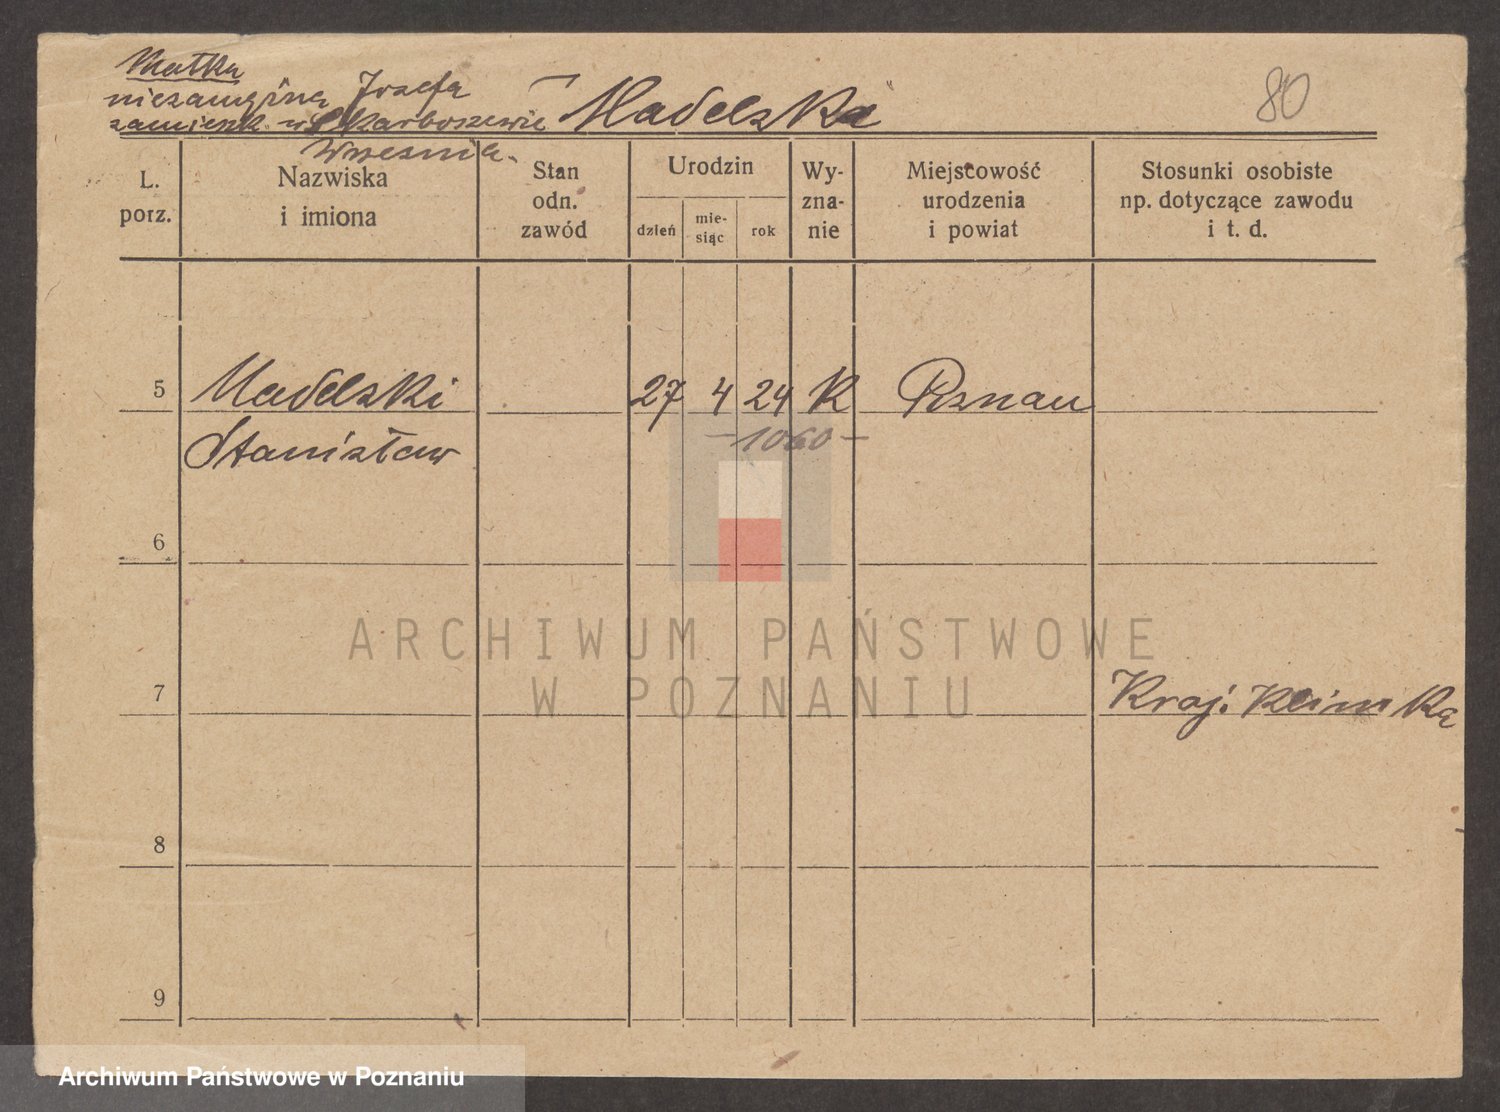 Matka
niezamężna Józefa Madelska 80
zamieszk. w Skarboszewie
Września.
L. porz.
Nazwiska i imiona
Stan odn. zawód
Urodzin
dzień
mie-
siąc
rok
Wy-
zna-
nie
Miejscowość
urodzenia
i powiat
Stosunki osobiste
np. dotyczące zawodu
i t. d.
5 Madelski 27 4 24 K Poznan
Stanisław
–1060–
6
7 Kraj.
8
9
ARCHIWUM PAŃSTWOWE
W POZNANIU
Archiwum Państwowe w Poznaniu